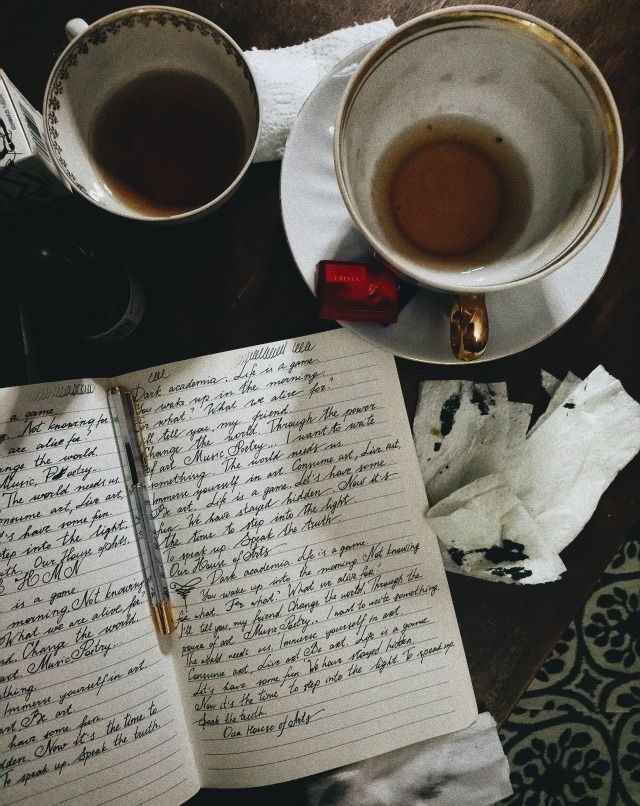 CRISTA
a game.
Not knowing for
are alive for?
ange the world.
Music, Poetry...
The world needs us.
onsume art, Live art,
t's have some fun.
tep into the light.
th. Our House of Arts.
H M N
is a game.
morning. Not knowing
What we are alive for?
nd. Change the world.
art. Music Poetry...
thing.
Immerse yourself in art.
art. Be art.
have some fun.
dden. Now it's the time to
To speak up. Speak the truth.
Dark academia. Life is a game.
You wake up in the morning.
For what? What we alive for?
I'll tell you, my friend.
Change the world. Through the power
of art. Music Poetry... I want to write
something. The world needs us.
Immerse yourself in art. Consume art, Live art,
Be art. Life is a game. Let's have some
fun. We have stayed hidden. Now it's
the time to step into the light.
To speak up. Speak the truth.
Our House of Arts
Dark academia. Life is a game.
You wake up into the morning. Not knowing
for what. For what? What we alive for?
I'll tell you, my friend. Change the world. Through the
power of art. Music Poetry... I want to write something.
The world needs us. Immerse yourself in art.
Consume art, Live art. Be Art. Life is a game.
Let's have some fun. We have stayed hidden.
Now it's the time to step into the light. To speak up.
Speak the truth.
Our House of Arts